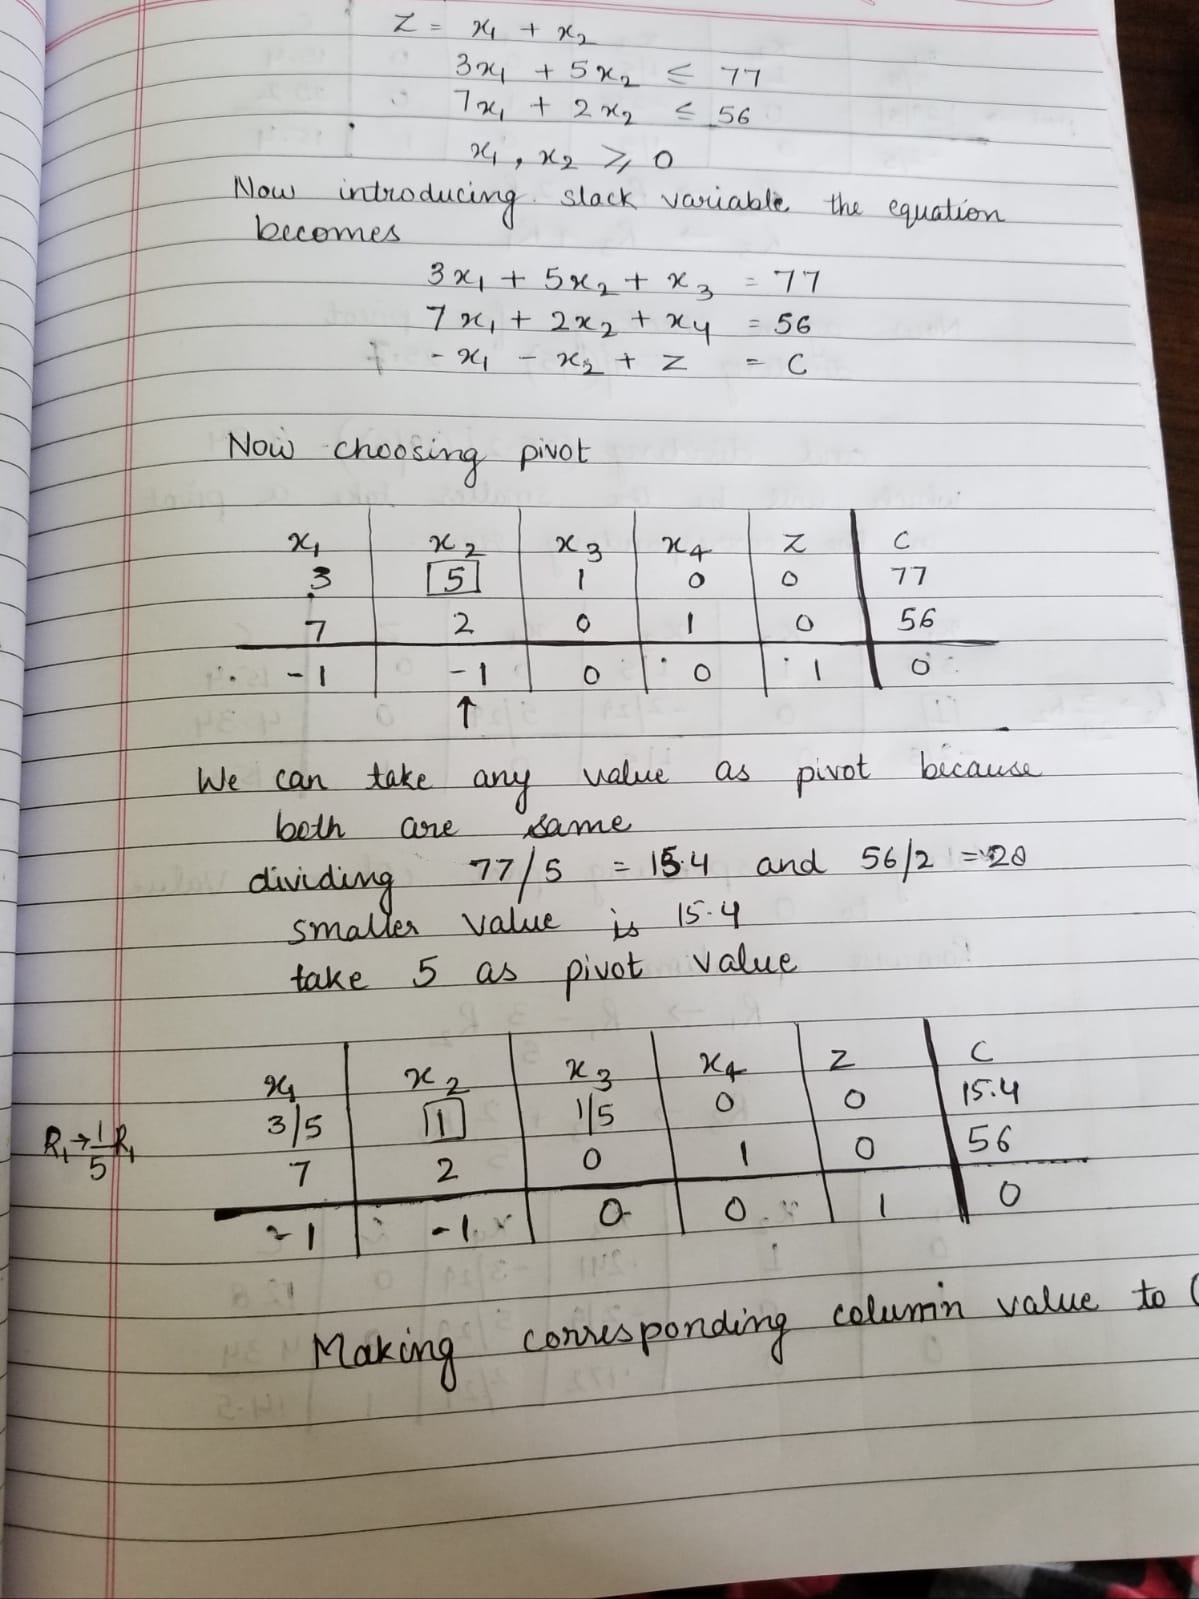 Z = x₁ + x₂
3x₁ + 5x₂ ≤ 77
7x₁ + 2x₂ ≤ 56
x₁, x₂ ≥ 0
Now introducing slack variable the equation
becomes
3x₁ + 5x₂ + x₃ = 77
7x₁ + 2x₂ + x₄ = 56
- x₁ - x₂ + z = C
Now choosing pivot
x₁ x₂ x₃ x₄ z C
3 5 1 0 0 77
7 2 0 1 0 56
-1 -1 0 0 1 0
↑
We can take any value as pivot because
both are same
dividing 77/5 = 15.4 and 56/2 = 28
smaller value is 15.4
take 5 as pivot value
x₁ x₂ x₃ x₄ z C
R₁→1/5 R₁ 3/5 1 1/5 0 0 15.4
7 2 0 1 0 56
-1 -1 0 0 1 0
Making corresponding column value to